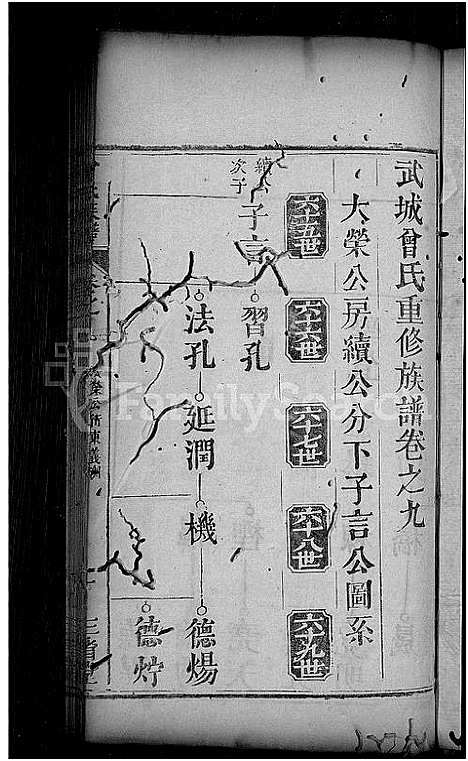 武城曾氏重修族譜卷之九
大榮公房續公分下子言公圖系
六十五世
六十六世
六十七世
六十八世
六十九世
續公次子
子言
習孔
法孔
延潤
機
德煬
德炉
三省堂
FamilySearch